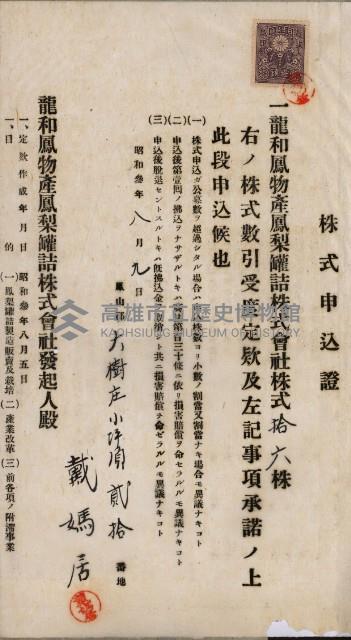 株式申込證
一龍和鳳物產鳳梨罐詰株式會社株式拾六株
右ノ株式數引受度定欵及左記事項承諾ノ上
此段申込候也
(一)株式申込ガ公募數ヲ超過シタル場合ハ申込株式數ヨリ小數ノ割當又割當ナキ場合モ異議ナキコト
(二)申込後第壹回ノ拂込ヲナサザルトキハ商法第百三十條ニ依リ損害賠償ヲ命セラルルモ異議ナキコト
(三)申込後脫退セントスルトキハ既拂込金ヲ抛棄シ共ニ損害賠償ヲ命ゼラルルモ異議ナキコト
昭和參年八月九日
鳳山郡大樹庄小坪頂貳拾番地
戴媽居
龍和鳳物產鳳梨罐詰株式會社發起人殿
一、定欵作成年月日 昭和參年八月五日
一、目的 (一)鳳梨罐詰製造販賣及栽培 (二)產業改革 (三)前各項ノ附滯事業
高雄市立歷史博物館
KAOHSIUNG MUSEUM OF HISTORY